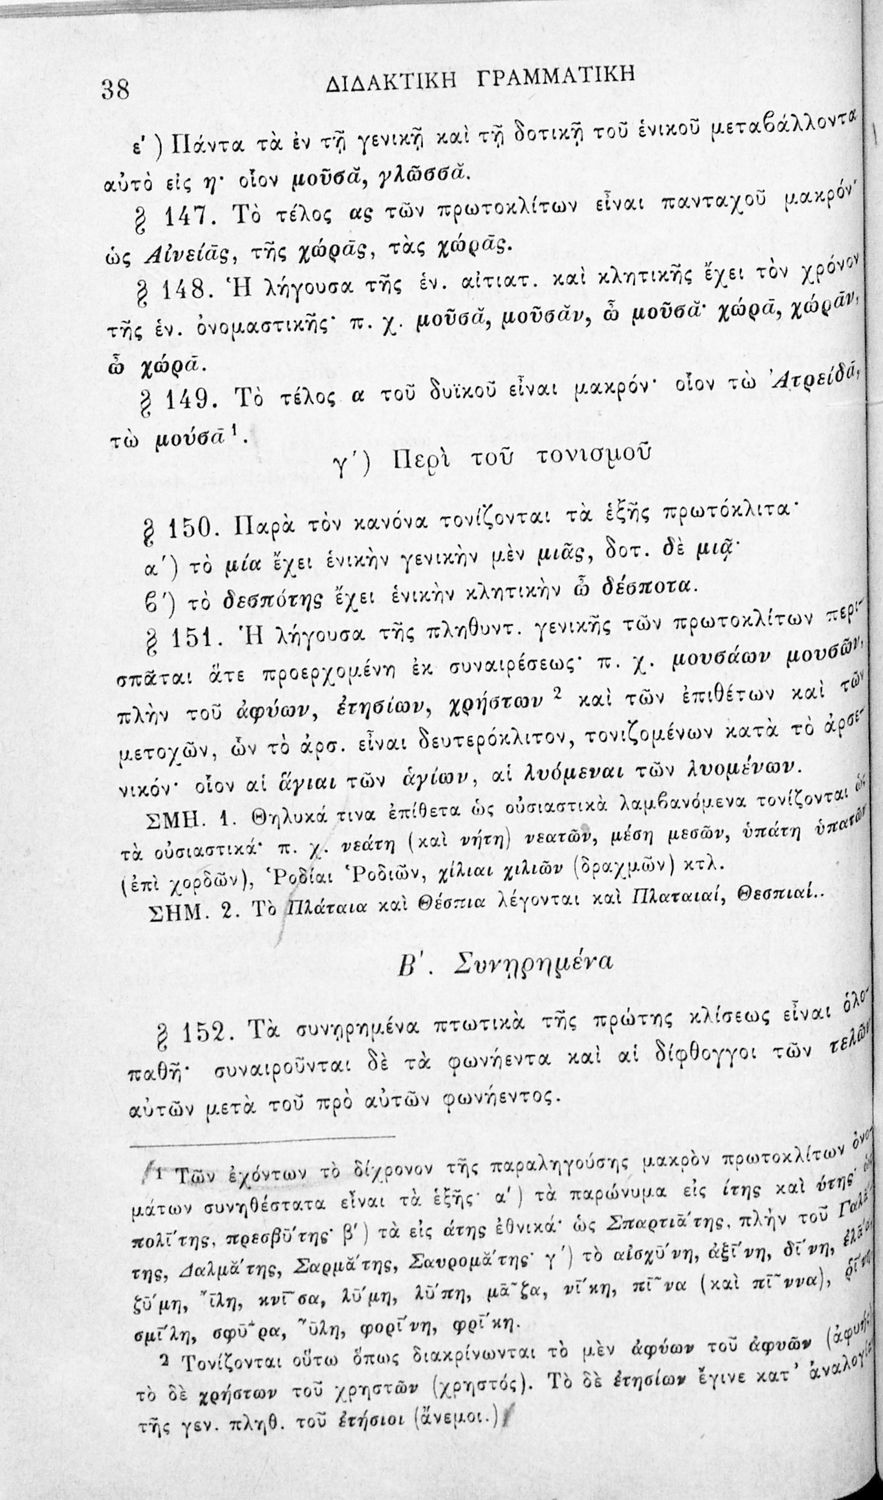 38
ΔΙΔΑΚΤΙΚΗ ΓΡΑΜΜΑΤΙΚΗ
ε') Πάντα τὰ ἐν τῇ γενικῇ καὶ τῇ δοτικῇ τοῦ ἑνικοῦ μεταβάλλοντα
αὐτὸ εἰς η· οἷον μοῦσᾰ, γλῶσσᾰ.
§ 147. Τὸ τέλος ας τῶν πρωτοκλίτων εἶναι πανταχοῦ μακρόν·
ὡς Αἰνείᾱς, τῆς χώρᾱς, τὰς χώρᾱς.
§ 148. Ἡ λήγουσα τῆς ἑν. αἰτιατ. καὶ κλητικῆς ἔχει τὸν χρόνον
τῆς ἑν. ὀνομαστικῆς· π. χ. μοῦσᾰ, μοῦσᾰν, ὦ μοῦσᾰ· χώρᾱ, χώρᾱν,
ὦ χώρᾱ.
§ 149. Τὸ τέλος α τοῦ δυϊκοῦ εἶναι μακρόν· οἷον τὼ Ἀτρείδᾱ,
τὼ μούσᾱ ¹.
γ') Περὶ τοῦ τονισμοῦ
§ 150. Παρὰ τὸν κανόνα τονίζονται τὰ ἑξῆς πρωτόκλιτα·
α') τὸ μία ἔχει ἑνικὴν γενικὴν μὲν μιᾶς, δοτ. δὲ μιᾷ·
β') τὸ δεσπότης ἔχει ἑνικὴν κλητικὴν ὦ δέσποτα.
§ 151. Ἡ λήγουσα τῆς πληθυντ. γενικῆς τῶν πρωτοκλίτων περι-
σπᾶται ἅτε προερχομένη ἐκ συναιρέσεως· π. χ. μουσάων μουσῶν,
πλὴν τοῦ ἀφύων, ἐτησίων, χρήστων ² καὶ τῶν ἐπιθέτων καὶ τῶν
μετοχῶν, ὧν τὸ ἀρσ. εἶναι δευτερόκλιτον, τονιζομένων κατὰ τὸ ἀρσε-
νικόν· οἷον αἱ ἅγιαι τῶν ἁγίων, αἱ λυόμεναι τῶν λυομένων.
ΣΜΗ. 1. Θηλυκά τινα ἐπίθετα ὡς οὐσιαστικὰ λαμβανόμενα τονίζονται ὡς
τὰ οὐσιαστικά· π. χ. νεάτη (καὶ νήτη) νεατῶν, μέση μεσῶν, ὑπάτη ὑπατῶν
(ἐπὶ χορδῶν), Ῥοδίαι Ῥοδιῶν, χίλιαι χιλιῶν (δραχμῶν) κτλ.
ΣΗΜ. 2. Τὸ Πλάταια καὶ Θέσπια λέγονται καὶ Πλαταιαί, Θεσπιαί..
Β'. Συνῃρημένα
§ 152. Τὰ συνῃρημένα πτωτικὰ τῆς πρώτης κλίσεως εἶναι ὁλο-
παθῆ· συναιροῦνται δὲ τὰ φωνήεντα καὶ αἱ δίφθογγοι τῶν τελῶν
αὐτῶν μετὰ τοῦ πρὸ αὐτῶν φωνήεντος.
1 Τῶν ἐχόντων τὸ δίχρονον τῆς παραληγούσης μακρὸν πρωτοκλίτων ὀνο-
μάτων συνηθέστατα εἶναι τὰ ἑξῆς· α') τὰ παρώνυμα εἰς ίτης καὶ ύτης· ὡς
πολῑ́της, πρεσβῡ́της· β') τὰ εἰς άτης ἐθνικά· ὡς Σπαρτιᾱ́της, πλὴν τοῦ
της, Δαλμᾰ́της, Σαρμᾰ́της, Σαυρομᾰ́της· γ') τὸ αἰσχῡ́νη, ἀξῑ́νη, δῑ́νη,
ζῡ́μη, ἴ̄λη, κνῖσα, λῡ́μη, λῡ́πη, μᾶζα, νῑ́κη, πῖνα (καὶ πῖννα),
σμῑ́λη, σφῦρα, ὕ̄λη, φορῑ́νη, φρῑ́κη.
2 Τονίζονται οὕτω ὅπως διακρίνωνται τὸ μὲν ἀφύων τοῦ ἀφυῶν
τὸ δὲ χρήστων τοῦ χρηστῶν (χρηστός). Τὸ δὲ ἐτησίων ἔγινε κατ' ἀναλογίαν
τῆς γεν. πληθ. τοῦ ἐτήσιοι (ἄνεμοι.)